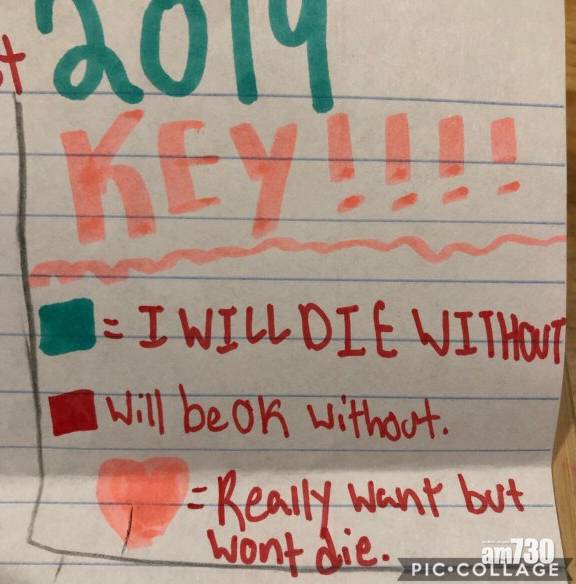 2019
KEY!!!!
= I WILL DIE WITHOUT
Will be OK Without.
= Really want but
wont die.
am730
PIC•COLLAGE